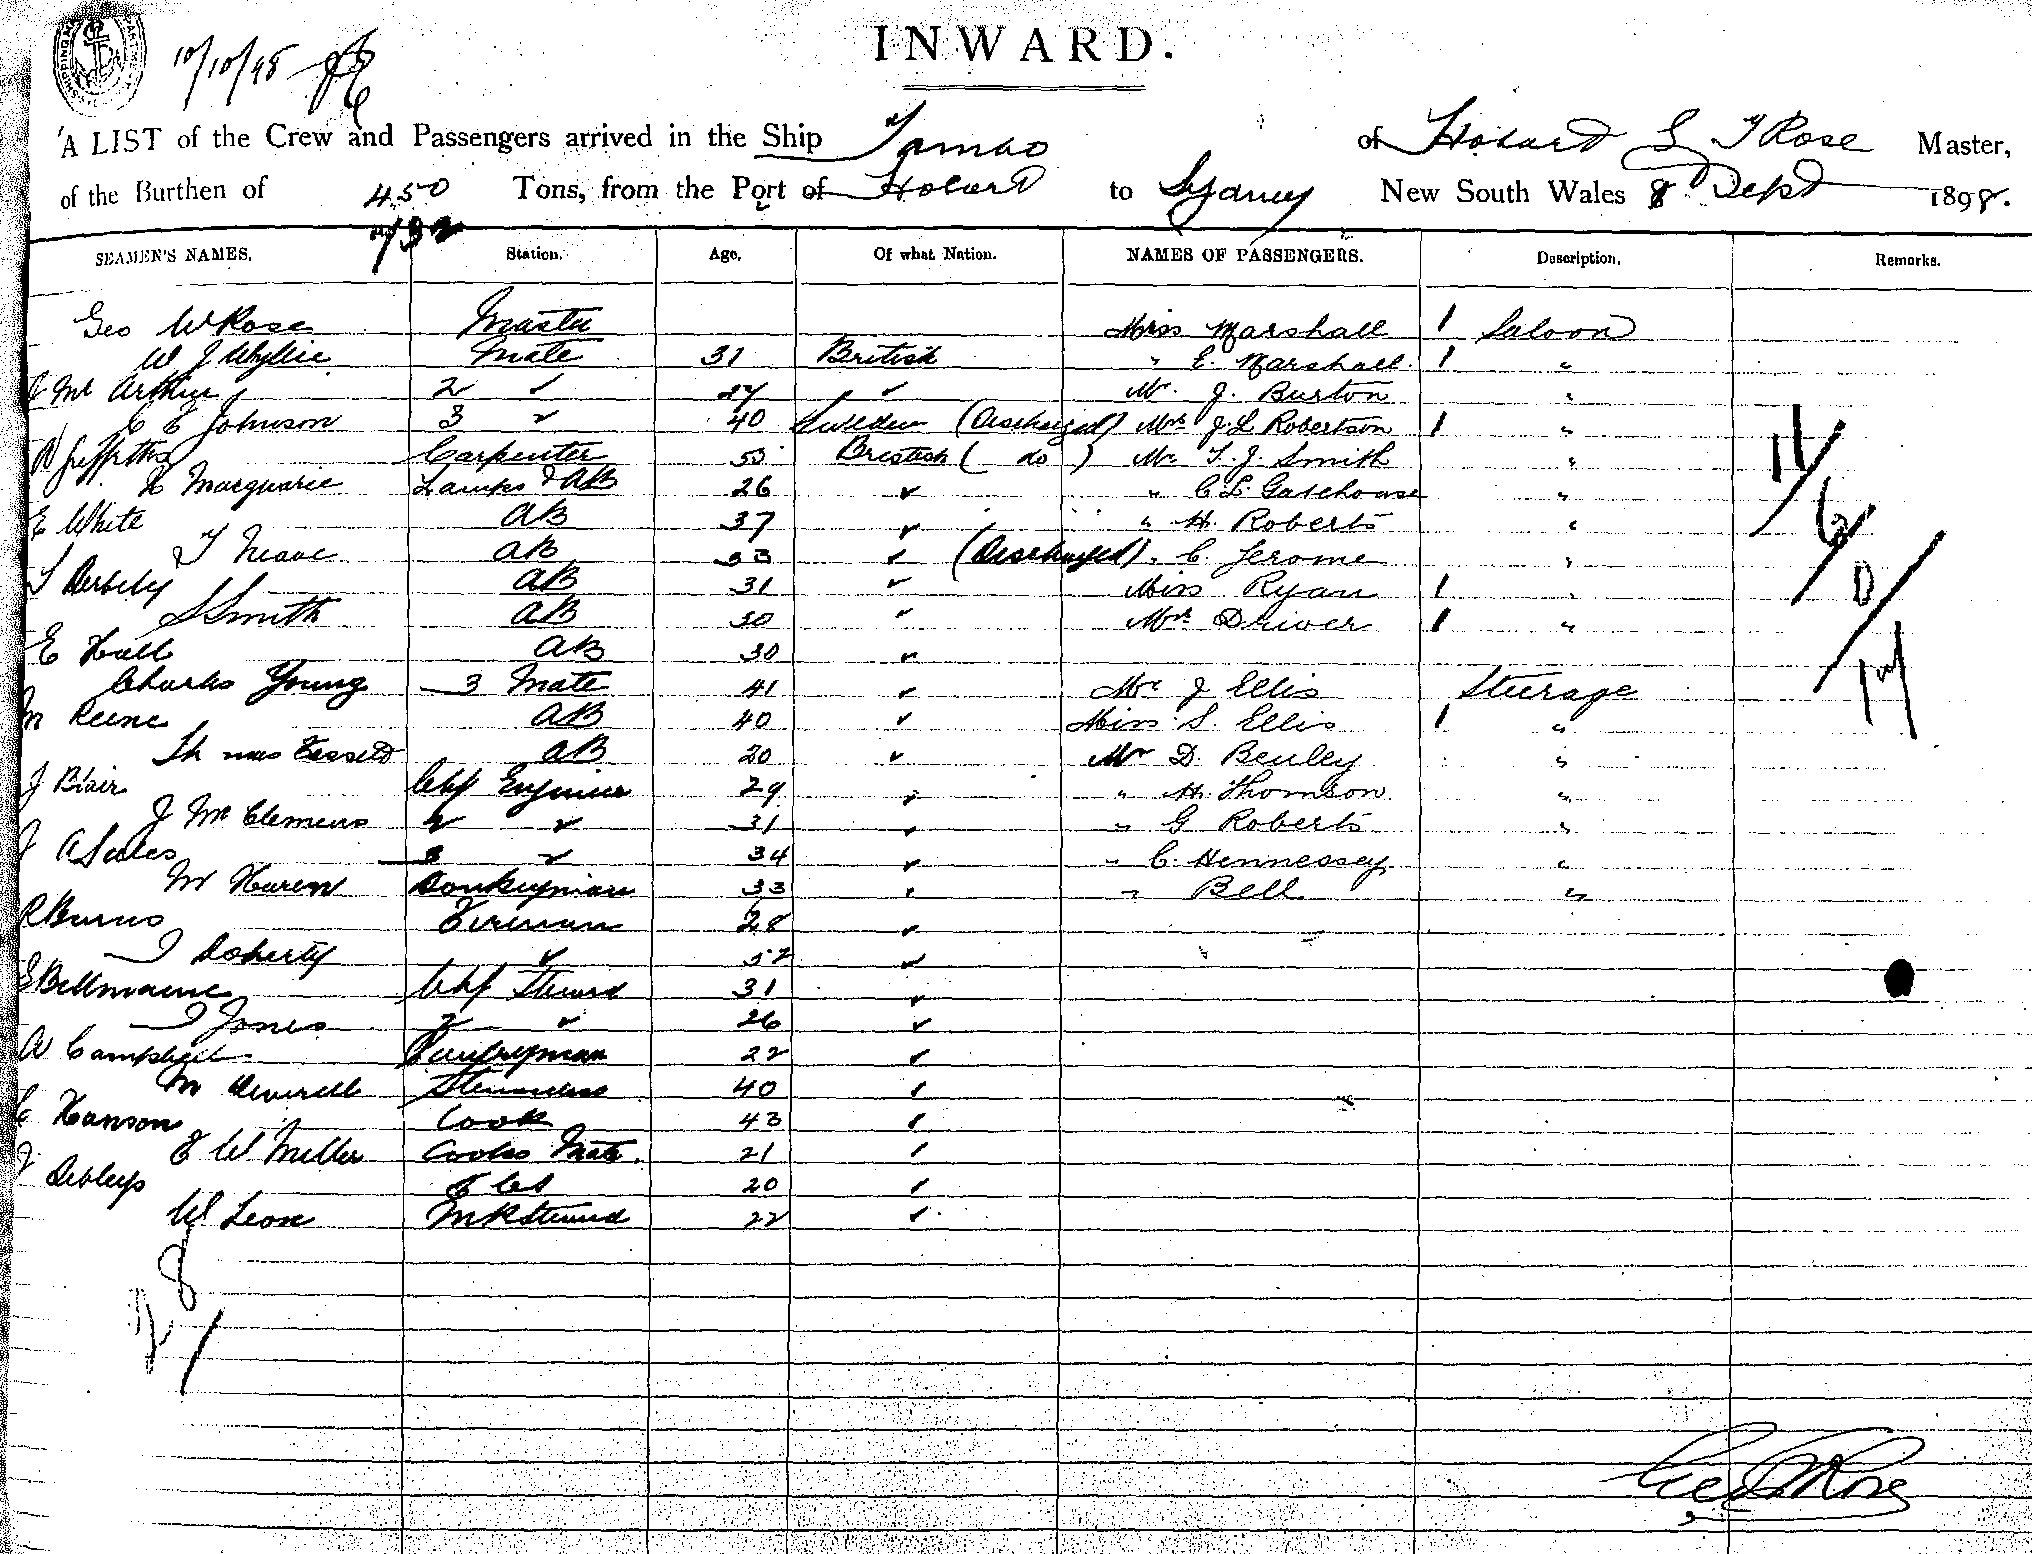 INWARD.
10/10/98
A LIST of the Crew and Passengers arrived in the Ship Tambo of Hobart G T Rose Master,
of the Burthen of 450 Tons, from the Port of Hobart to Sydney New South Wales 8 Sept 1898.
732
SEAMEN'S NAMES. Station. Age. Of what Nation. NAMES OF PASSENGERS. Description. Remarks.
Geo W Rose Master Miss Marshall 1 Saloon
W J Wyllie Mate 31 British " E. Marshall 1 "
Mc Arthur 2 ✓ 27 ✓ Mr. J. Burton "
C E Johnson 3 ✓ 40 Sweden (Discharged) Mrs J L Robertson 1 "
R Griffiths Carpenter 53 British ( do ) Mr T. J. Smith "
R Macquarie Lamps & AB 26 ✓ " C. L. Gatehouse "
E White AB 37 ✓ " H. Roberts "
T Neave AB 33 ✓ (Discharged) " C. Jerome "
T Derbely AB 31 ✓ Miss Ryan 1 "
S Smith AB 30 " Mrs Driver 1 "
E Hall AB 30 ✓
Charles Young 3 Mate 41 ✓ Mr J Ellis Steerage
M Reene AB 40 ✓ Miss S. Ellis 1 "
AB 20 ✓ Mr D. Bewley "
J Blair Chf Engineer 29 ✓ " H. Thomson "
J Mc Clemens 2 ✓ 31 ✓ " G Roberts "
J A Scales 3 ✓ 34 ✓ " C. Hennessey "
M Haren Donkeyman 33 ✓ " Bell "
R Burns Fireman 28 ✓
J Doherty ✓ 52 ✓
E Bellmaine Chf Steward 31 ✓
J Jones 2 ✓ 26 ✓
A Campbell Pantryman 22 ✓
M Deverell Stewardess 40 ✓
C Hanson Cook 43 ✓
E W Miller Cooks Mate 21 ✓
J 20 ✓
W Leon Steward 22 ✓
11/6/0/17
28/
Geo Rose